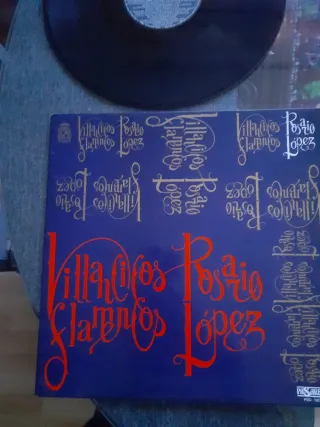 Villancicos Rosario
flamencos López
Villancicos Rosario
flamencos López
Villancicos Rosario
flamencos López
Villancicos Rosario
flamencos López
Villancicos Rosario
flamencos López
Villancicos Rosario
flamencos López
Villancicos Rosario
flamencos López